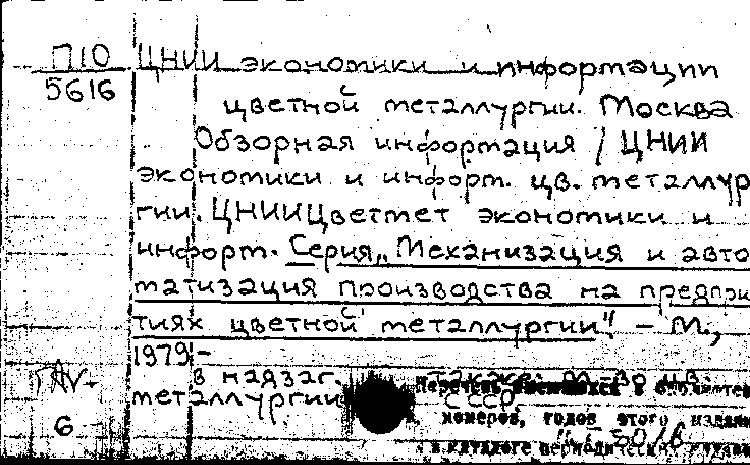 П10 ЦНИИ экономики и информации
5616 цветной металлургии. Москва
Обзорная информация / ЦНИИ
экономики и информ. цв. металлур
гии. ЦНИИЦветмет экономики и
информ. Серия „Механизация и авто
матизация производства на предпри
тиях цветной металлургии". – М.,
1979 –
в надзаг. также: М-во цв.
металлургии СССР
Перечень в библиотеке
номеров, годов этого издания
6 в каталоге периодических изданий